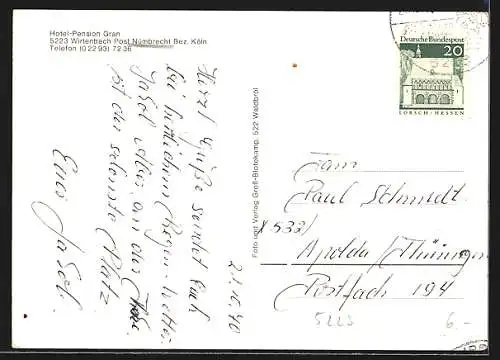 Hotel-Pension Gran
5223 Wirtenbach Post Nümbrecht Bez. Köln
Telefon (0 22 93) 72 36
Herzl. Grüße sendet Euch
bei herrlichem Regen-Wetter
Jakob
ist der schönste Platz
Euer Jakob
Foto und Verlag Greß-Blotekamp, 522 Waldbröl
Deutsche Bundespost
20
LORSCH / HESSEN
Paul Schmidt
X 532
Apolda / Thüringen
Postfach 194
5223
6.-